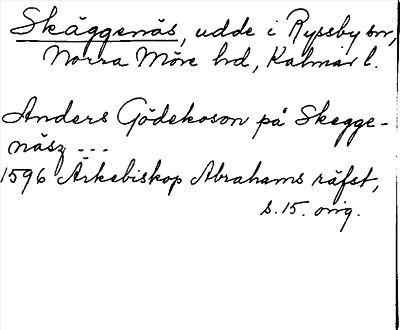 Skäggenäs, udde i Ryssby sn,
Norra Möre hd, Kalmar l.
Anders Gödekoson på Skegge-
näsz ---
1596 Ärkebiskop Abrahams räfst,
s. 15. orig.